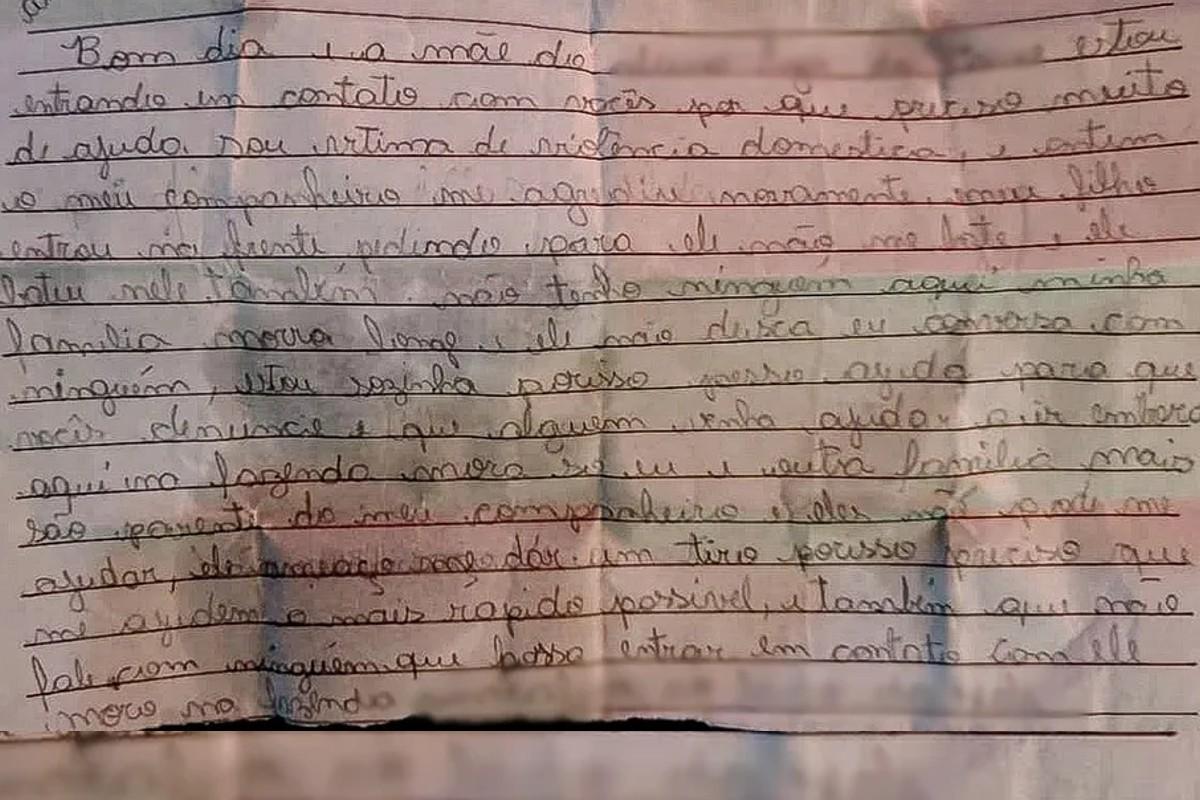 Bom dia sua mãe do estou
entrando em contato com vocês por que preciso muito
de ajuda. sou vitima de violência domestica, e ontem
o meu companheiro me agrediu novamente, meu filho
entrou na frente pedindo para ele não me bate e ele
bateu nele também. não tenho ninguém aqui minha
familia morra longe e ele não deixa eu conversa com
ninguém, estou sozinha ajuda para que
vocês denuncie e que alguem venha ajudar a ir embora
aqui na fazenda mora só eu e outra familia mais
são parente do meu companheiro e eles não pode me
ajudar, ele dar um tiro preciso que
me ajudem o mais rápido possivel, e também que não
fale com ninguém que possa entrar em contato com ele
moro na fazenda